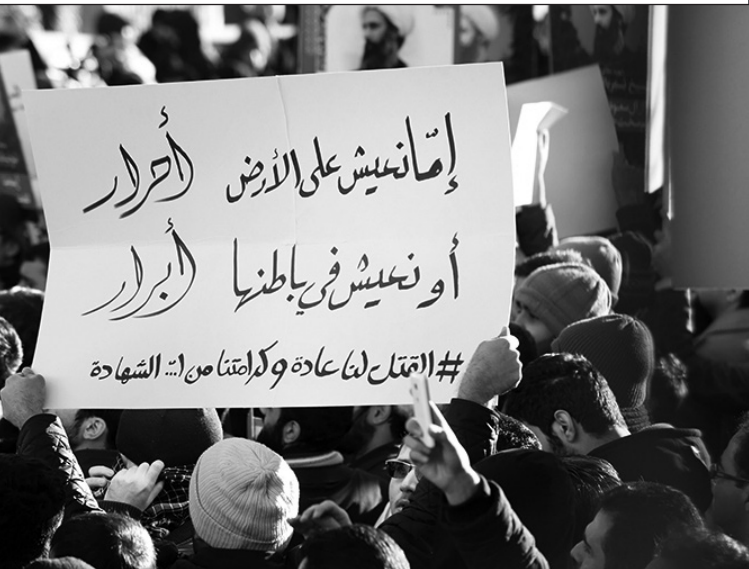 إمّا نعيش على الأرض أحرار
أو نعيش في باطنها أبرار
#القتل لنا عادة و كرامتنا من الله الشهادة